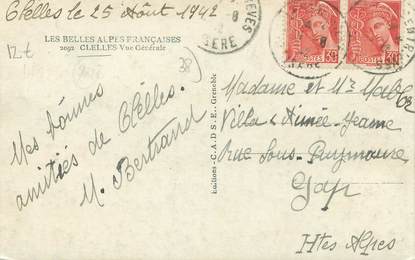 Clelles le 25 Août 1942
LES BELLES ALPES FRANÇAISES
2092 CLELLES Vue Générale
12t
38
Mes bonnes
amitiés de Clelles.
M. Bertrand
Editions - C.A.D.S.E. - Grenoble
ISERE
30
POSTES
30
POSTES
Madame et Mr
Villa Aimée-Jeanne
Rue Sous-Puymaure
Gap
Htes Alpes